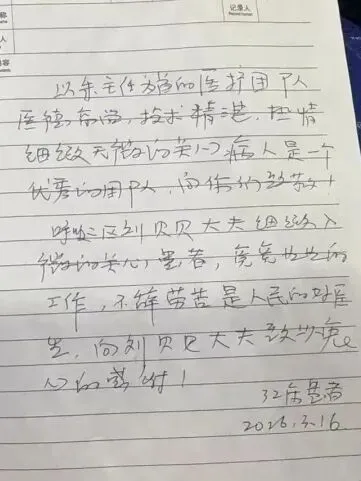 记录人
以朱主任为首的医护团队
医德高尚，技术精湛，热情
细致无微的关心病人是一个
优秀的团队，向你们致敬！
呼吸二区刘贝贝大夫细致入
微的关心患者，兢兢业业的
工作，不辞劳苦是人民的好医
生，向刘贝贝大夫致以衷
心的感谢！
32床患者
2026.3.16